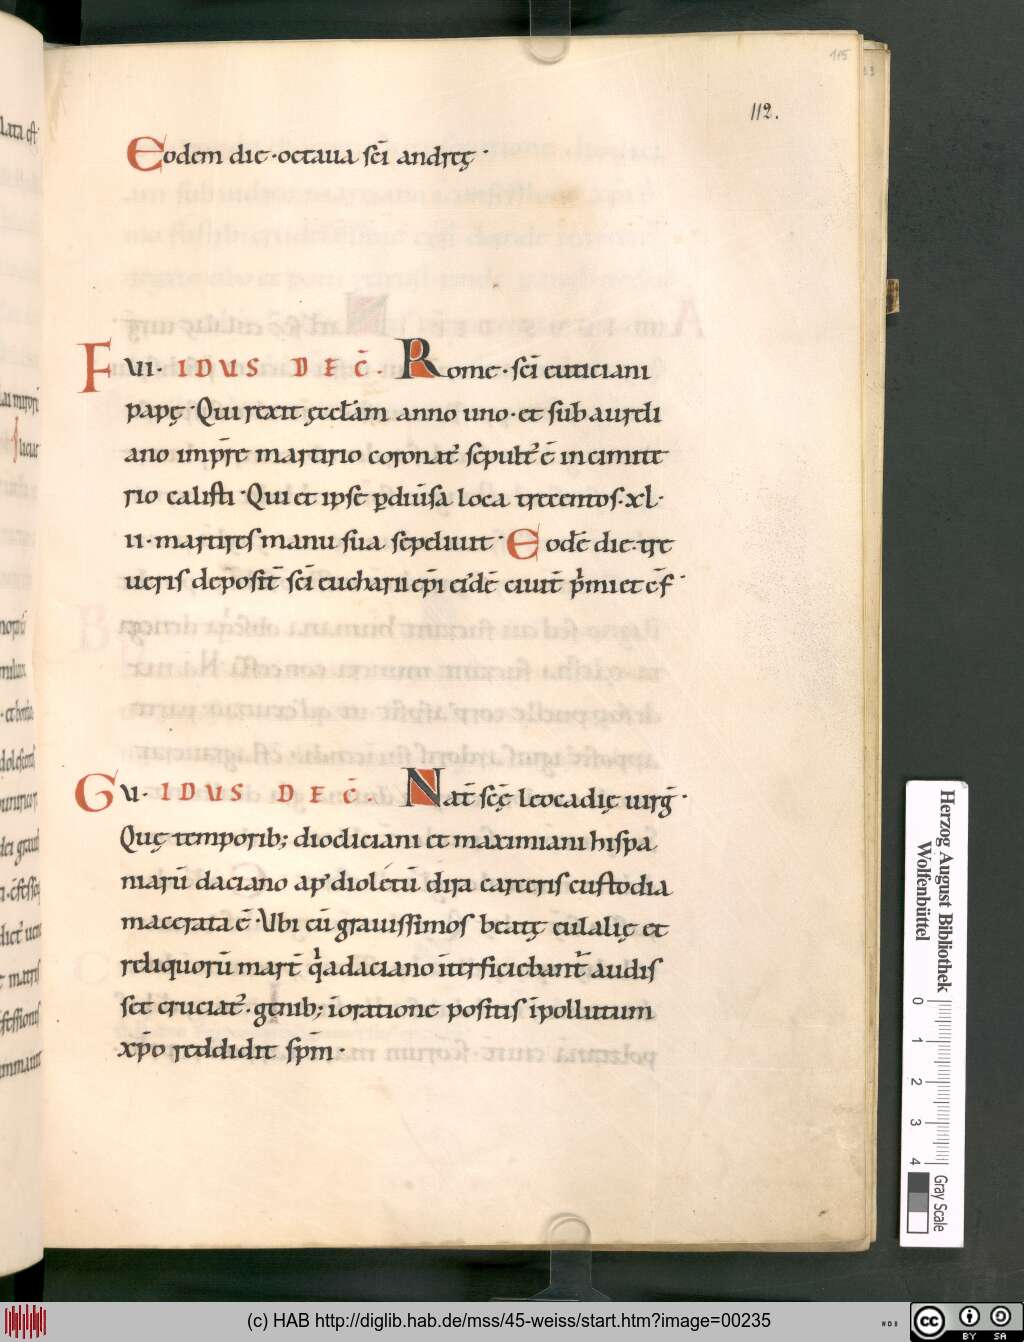 115
112.
Eodem die · octaua sc̄i andreę ·
F VI · IDUS DEC̄. Rome · sc̄i euticiani
papę · Qui rexit ęccl̄am anno uno · et sub aureli
ano imp̄re martirio coronat᷒ sepult᷒ ē in cimite
rio calisti · Qui et ipse p̱ diūsa loca trecentos · xl ·
ii · martires manu sua sepeliuit · Eodē die · tre
ueris deposit̄ sc̄i eucharii ep̄i ei᷒dē ciuit̄ p̄mi et c̄f ·
G V · IDUS DEC̄. Nat̄ sc̄ę leocadię uirḡ ·
Quę temporib; diocliciani et maximiani hispa
niarū daciano ap᷒ dioletū dira carceris custodia
macerata ē · Ubi cū grauissimos beatę eulalię et
reliquorū mart̄ q̄ a daciano īterficiebant᷒ audis
set cruciat᷒ · genib; ī oratione positis īpollutum
xp̄o reddidit sp̄m ·
Herzog August Bibliothek
Wolfenbüttel
0 1 2 3 4
Gray Scale
(c) HAB http://diglib.hab.de/mss/45-weiss/start.htm?image=00235
WDB
cc BY SA